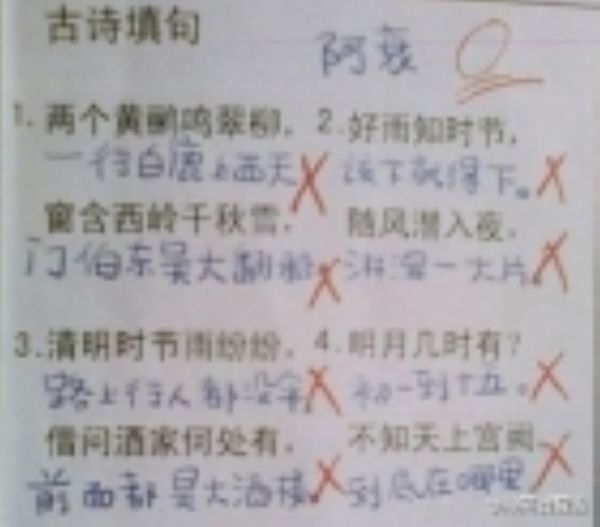 古诗填句
阿衰 0
1. 两个黄鹂鸣翠柳, 2. 好雨知时节,
一行白鹿上西天 该下就得下。
窗含西岭千秋雪, 随风潜入夜,
门伯东吴大翻船 淋湿一大片
3. 清明时节雨纷纷, 4. 明月几时有?
路上行人都没伞 初一到十五。
借问酒家何处有, 不知天上宫阙
前面都是大酒楼 到底在哪里